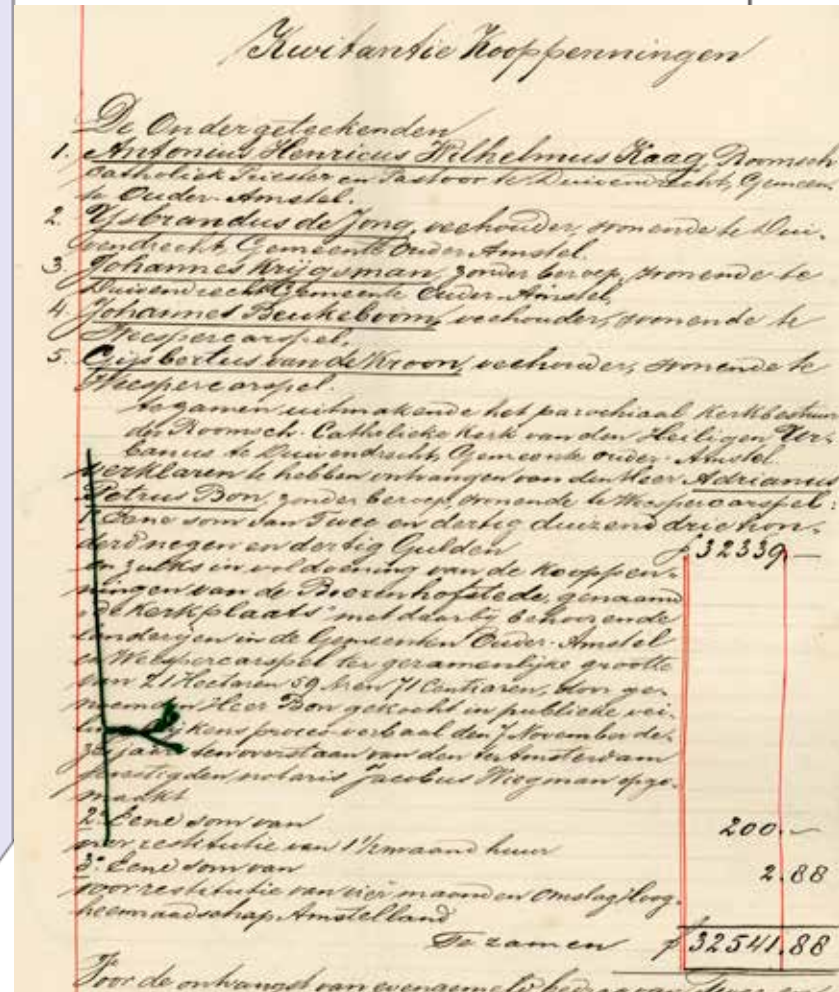 Kwitantie Kooppenningen
De Ondergeteekenden
1. Antonius Henricus Wilhelmus Kaag, Roomsch
Catholiek Priester en Pastoor te Duivendrecht, Gemeen-
te Ouder-Amstel.
2. IJsbrandus de Jong, veehouder, wonende te Dui-
vendrecht, Gemeente Ouder-Amstel.
3. Johannes Krijgsman, zonder beroep, wonende te
Duivendrecht Gemeente Ouder-Amstel,
4. Johannes Beukeboom, veehouder, wonende te
Weespercarspel.
5. Gijsbertus van de Kroon, veehouder, wonende te
Weespercarspel.
tezamen uitmakende het parochiaal Kerkbestuur
der Roomsch-Catholieke Kerk van den Heiligen Ur-
banus te Duivendrecht, Gemeente Ouder-Amstel
verklaren te hebben ontvangen van den Heer Adrianus
Petrus Bon, zonder beroep, wonende te Weespercarspel:
1° Eene som van Twee en dertig duizend drie hon-
derd negen en dertig Gulden f 32339,—
en zulks in voldoening van de kooppen-
ningen van de Boerenhofstede, genaamd
"de Kerkplaats" met daarbij behoorende
landerijen in de Gemeenten Ouder-Amstel
en Weespercarspel ter gezamenlijke grootte
van 21 Hectaren 59 Aren 71 Centiaren, door ge-
noemden Heer Bon gekocht in publieke vei-
ling blijkens proces-verbaal den 7 November de-
zes jaars ten overstaan van den te Amsterdam
gevestigden notaris Jacobus Wiegman opge-
maakt
2° Eene som van 200.—
voor restitutie van 1½ maand huur
3° Eene som van 2.88
voor restitutie van vier maanden omslag Hoog-
heemraadschap Amstelland
Te zamen f 32541.88
Voor de ontvangst van evengemeld bedrag van Twee en